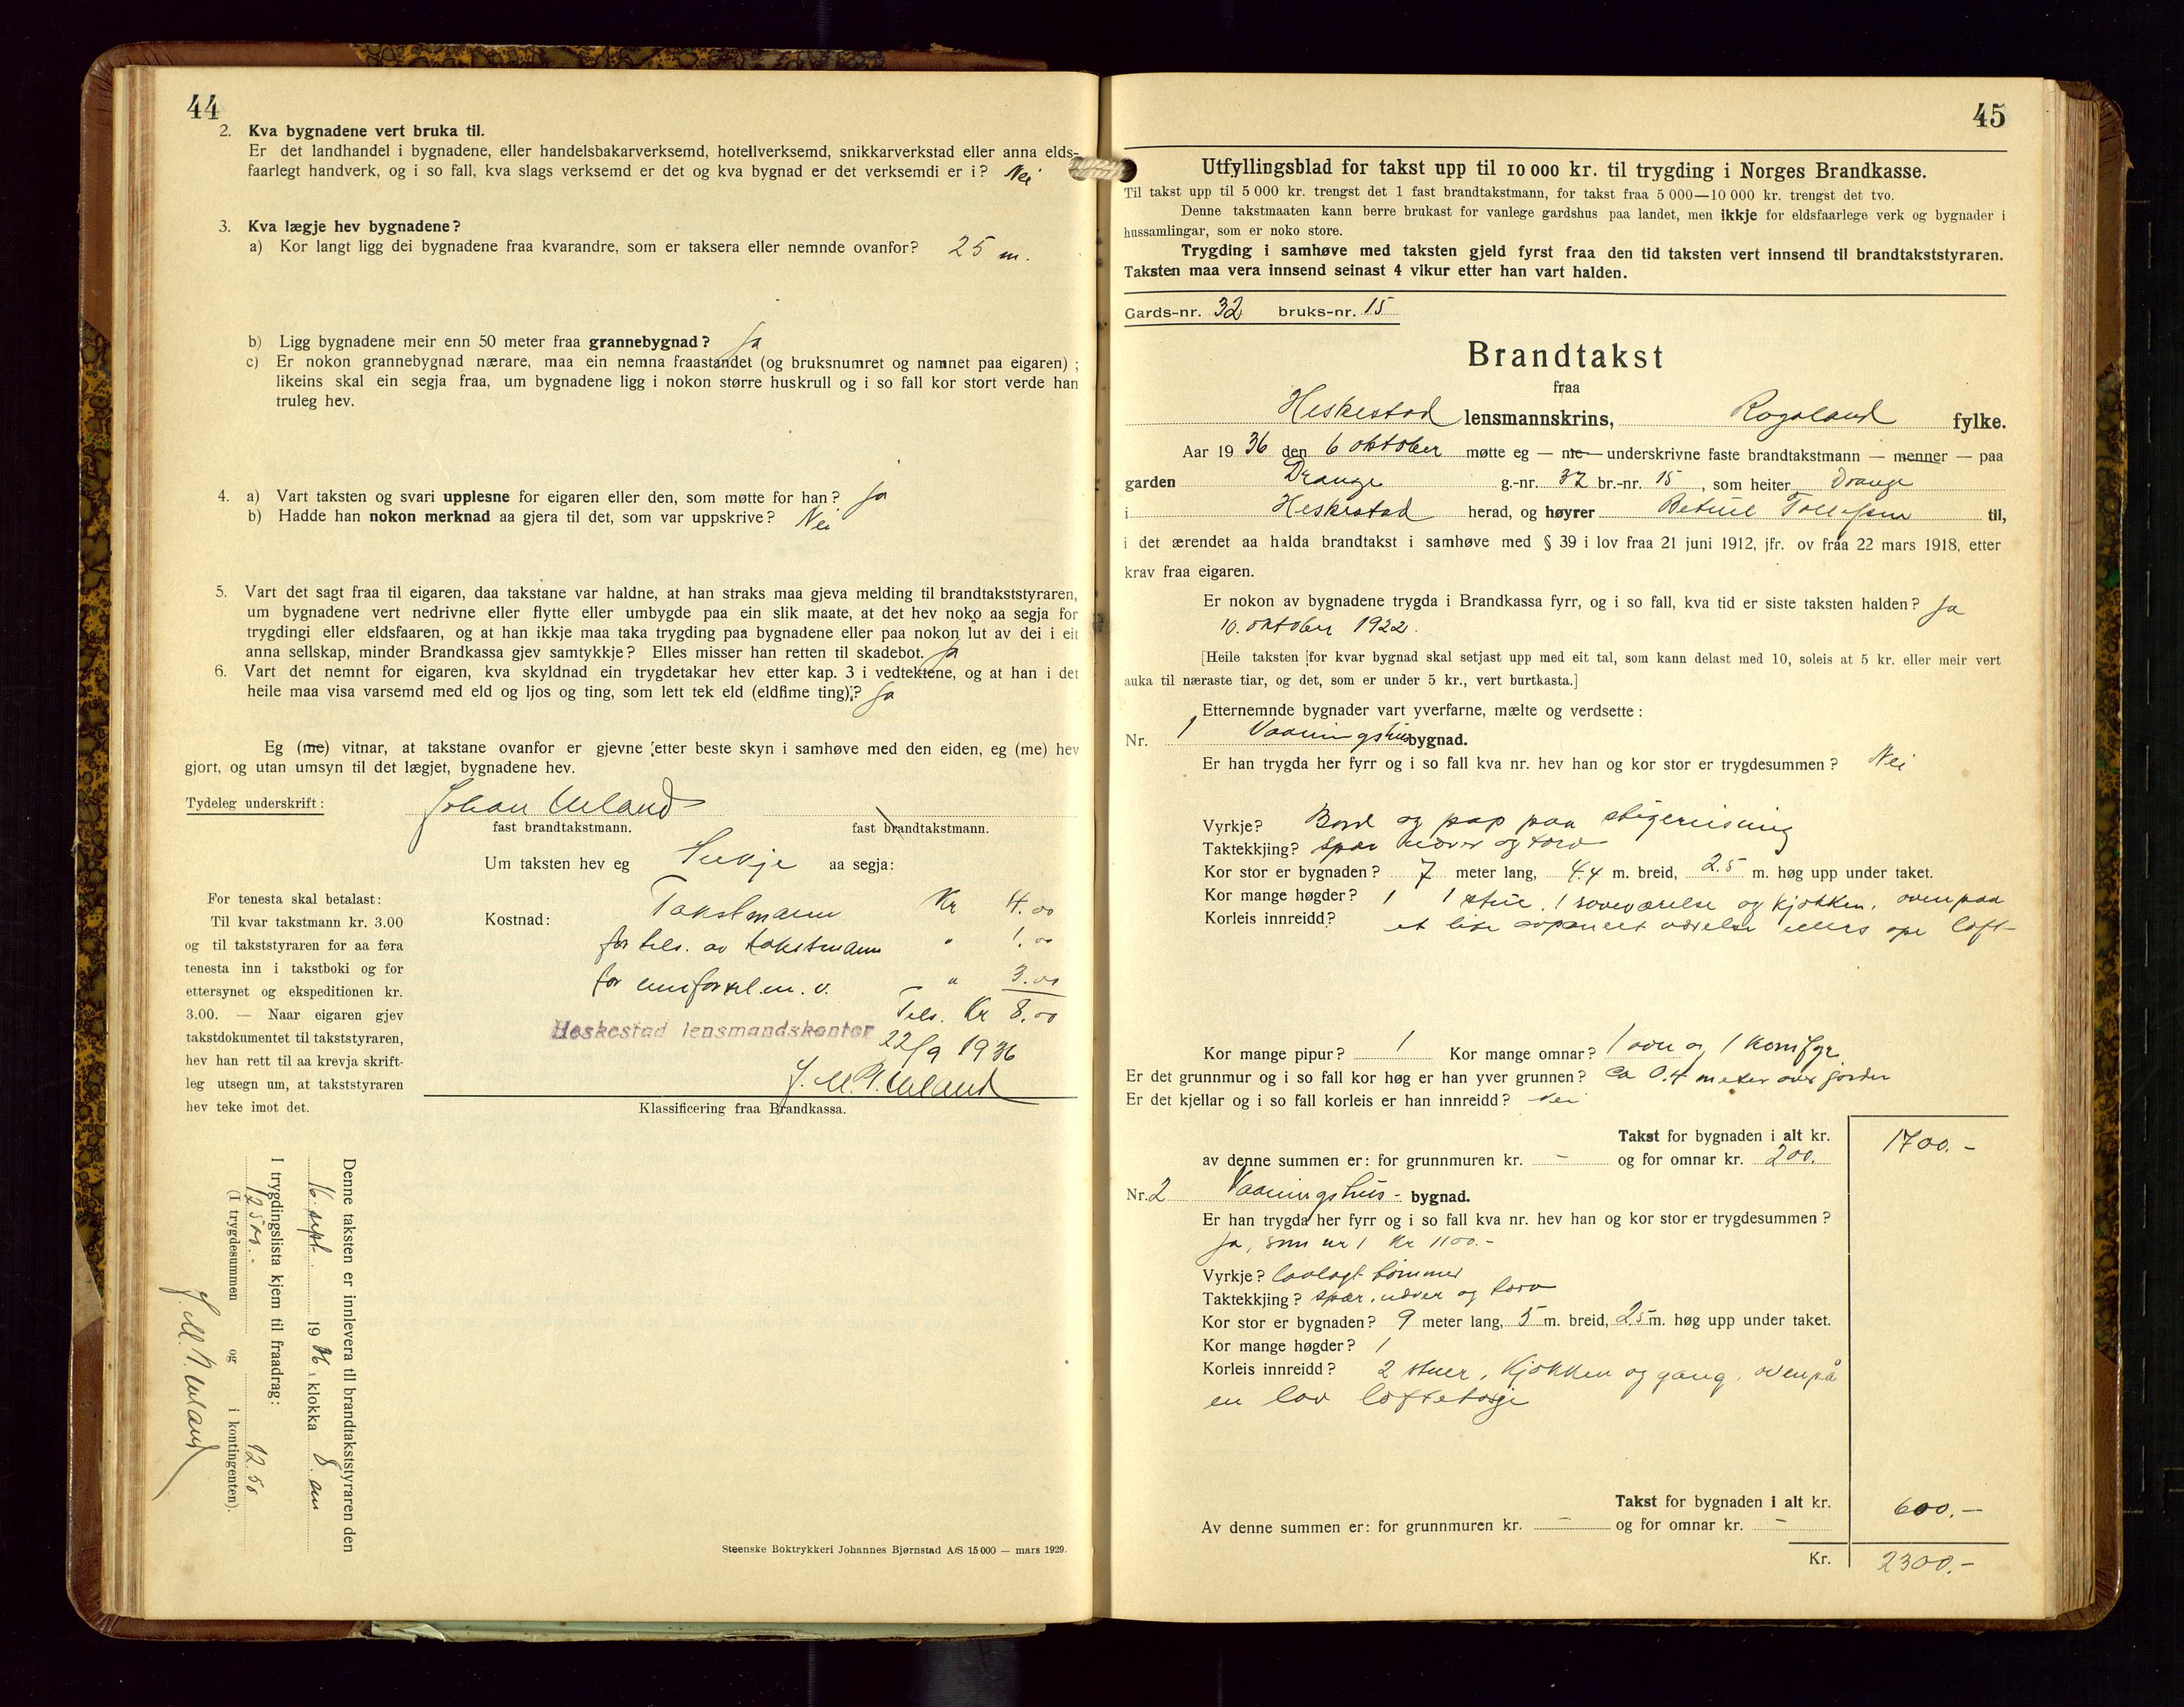 44
2. Kva bygnadene vert bruka til.
Er det landhandel i bygnadene, eller handelsbakarverksemd, hotellverksemd, snikkarverkstad eller anna elds-
faarlegt handverk, og i so fall, kva slags verksemd er det og kva bygnad er det verksemdi er i? Nei
3. Kva lægje hev bygnadene?
a) Kor langt ligg dei bygnadene fraa kvarandre, som er taksera eller nemnde ovanfor? 25 m.
b) Ligg bygnadene meir enn 50 meter fraa grannebygnad? Ja
c) Er nokon grannebygnad nærare, maa ein nemna fraastandet (og bruksnumret og namnet paa eigaren) ;
likeins skal ein segja fraa, um bygnadene ligg i nokon større huskrull og i so fall kor stort verde han
truleg hev.
4. a) Vart taksten og svari upplesne for eigaren eller den, som møtte for han? Ja
b) Hadde han nokon merknad aa gjera til det, som var uppskrive? Nei
5. Vart det sagt fraa til eigaren, daa takstane var haldne, at han straks maa gjeva melding til brandtakststyraren,
um bygnadene vert nedrivne eller flytte eller umbygde paa ein slik maate, at det hev noko aa segja for
trygdingi eller eldsfaaren, og at han ikkje maa taka trygding paa bygnadene eller paa nokon lut av dei i eit
anna sellskap, minder Brandkassa gjev samtykkje? Elles misser han retten til skadebot. Ja
6. Vart det nemnt for eigaren, kva skyldnad ein trygdetakar hev etter kap. 3 i vedtektene, og at han i det
heile maa visa varsemd med eld og ljos og ting, som lett tek eld (eldfime ting)? Ja
Eg (me) vitnar, at takstane ovanfor er gjevne etter beste skyn i samhøve med den eiden, eg (me) hev
gjort, og utan umsyn til det lægjet, bygnadene hev.
Tydeleg underskrift: Johan Urland
fast brandtakstmann. fast brandtakstmann.
Um taksten hev eg Ikkje aa segja:
For tenesta skal betalast:
Til kvar takstmann kr. 3.00
og til takststyraren for aa føra
tenesta inn i takstboki og for
ettersynet og ekspeditionen kr.
3.00. — Naar eigaren gjev
takstdokumentet til takststyraren,
hev han rett til aa krevja skrift-
leg utsegn um, at takststyraren
hev teke imot det.
Kostnad: Takstmann Kr 4.00
for tils. av takstmann " 1.00
for innførsel m. v. " 3.00
Tils. Kr 8.00
Heskestad lensmandskontor
22/9 1936
J. M. N. Urland
Klassificering fraa Brandkassa.
Denne taksten er innlevera til brandtakststyraren den
16 sept. 1936, klokka 8 em
I trygdingslista kjem til fraadrag:
12500.- 12.50
(I trygdesummen og i kontingenten).
J. M. N. Urland
Steenske Boktrykkeri Johannes Bjørnstad A/S 15 000 — mars 1929.
45
Utfyllingsblad for takst upp til 10 000 kr. til trygding i Norges Brandkasse.
Til takst upp til 5 000 kr. trengst det 1 fast brandtakstmann, for takst fraa 5 000—10 000 kr. trengst det tvo.
Denne takstmaaten kann berre brukast for vanlege gardshus paa landet, men ikkje for eldsfaarlege verk og bygnader i
hussamlingar, som er noko store.
Trygding i samhøve med taksten gjeld fyrst fraa den tid taksten vert innsend til brandtakststyraren.
Taksten maa vera innsend seinast 4 vikur etter han vart halden.
Gards-nr. 32 bruks-nr. 15
Brandtakst
fraa
Heskestad lensmannskrins, Rogaland fylke.
Aar 1936 den 6 oktober møtte eg — me underskrivne faste brandtakstmann — menner — paa
garden Drange g.-nr. 32 br.-nr. 15, som heiter Drange
i Heskestad herad, og høyrer Betuel Tollefsen til,
i det ærendet aa halda brandtakst i samhøve med § 39 i lov fraa 21 juni 1912, jfr. ov fraa 22 mars 1918, etter
krav fraa eigaren.
Er nokon av bygnadene trygda i Brandkassa fyrr, og i so fall, kva tid er siste taksten halden? Ja
10. oktober 1922.
[Heile taksten for kvar bygnad skal setjast upp med eit tal, som kann delast med 10, soleis at 5 kr. eller meir vert
auka til næraste tiar, og det, som er under 5 kr., vert burtkasta.]
Etternemnde bygnader vart yverfarne, mælte og verdsette:
Nr. 1 Vaaningshus bygnad.
Er han trygda her fyrr og i so fall kva nr. hev han og kor stor er trygdesummen? Nei
Vyrkje? Bord og pap paa stigereisning
Taktekkjing? spær næver og torv
Kor stor er bygnaden? 7 meter lang, 4.4 m. breid, 2.5 m. høg upp under taket.
Kor mange høgder? 1
Korleis innreidd? 1 stue, 1 soveværelse og kjøkken. ovenpaa
et lite avpanelt værelse ellers ope loft-
Kor mange pipur? 1 Kor mange omnar? 1 ovn og 1 komfyr
Er det grunnmur og i so fall kor høg er han yver grunnen? Ca 0.4 meter over jorden
Er det kjellar og i so fall korleis er han innreidd? Nei
Takst for bygnaden i alt kr. 1700.-
av denne summen er: for grunnmuren kr. - og for omnar kr. 200.
Nr. 2 Vaaningshus- bygnad.
Er han trygda her fyrr og i so fall kva nr. hev han og kor stor er trygdesummen?
Ja, som nr 1 Kr 1100.-
Vyrkje? lavlagt tømmer
Taktekkjing? spær, næver og torv
Kor stor er bygnaden? 9 meter lang, 5 m. breid, 2.5 m. høg upp under taket.
Kor mange høgder? 1
Korleis innreidd? 2 stuer, kjøkken og gang, ovenpå
en lav loftetasje
Takst for bygnaden i alt kr. 600.-
Av denne summen er: for grunnmuren kr. - og for omnar kr. -
Kr. 2300.-